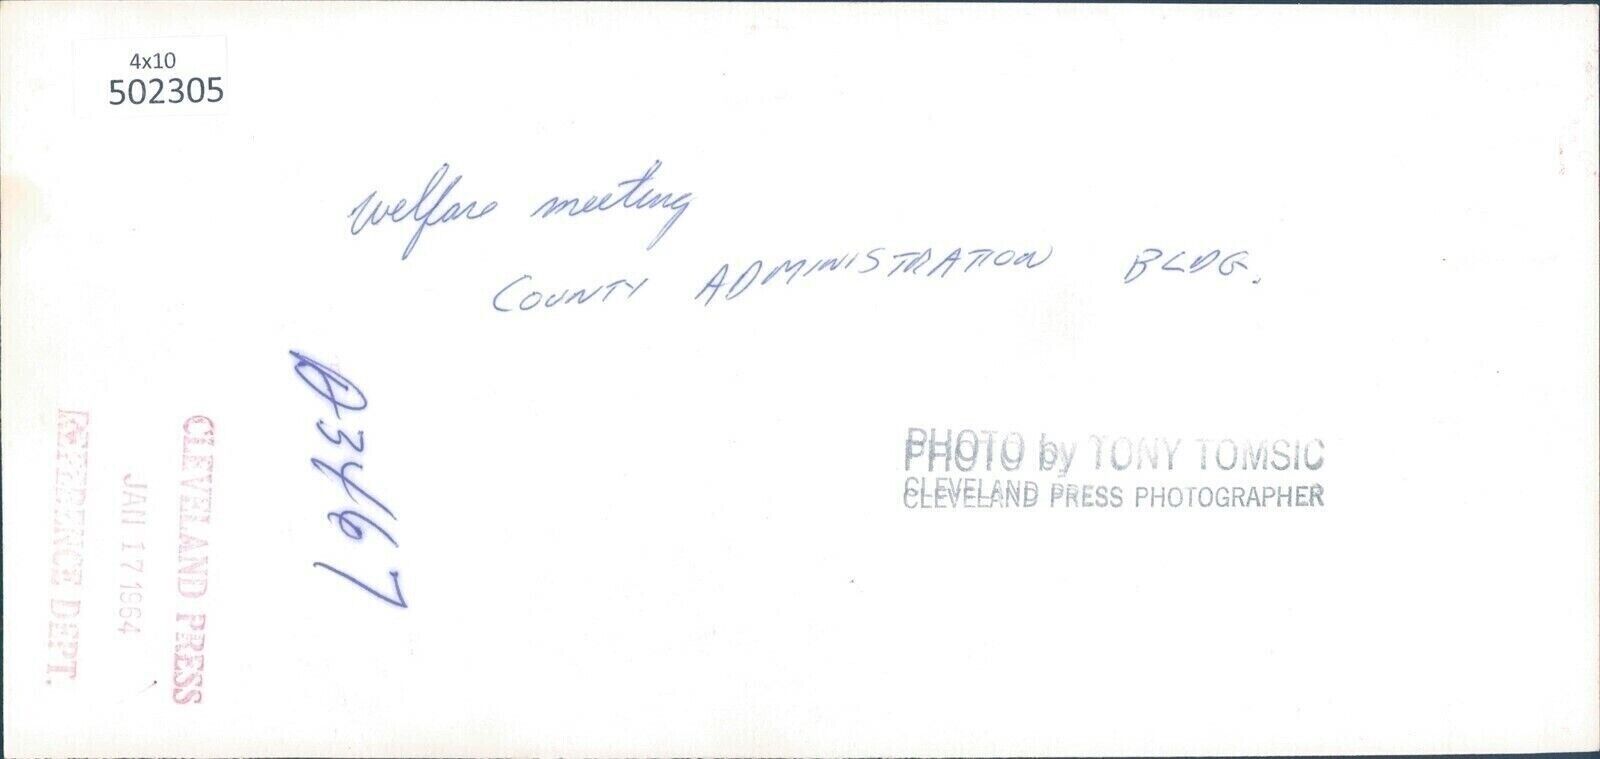 4x10
502305
welfare meeting
COUNTY ADMINISTRATION BLDG.
PHOTO by TONY TOMSIC
CLEVELAND PRESS PHOTOGRAPHER
CLEVELAND PRESS
JAN 17 1964
REFERENCE DEPT.